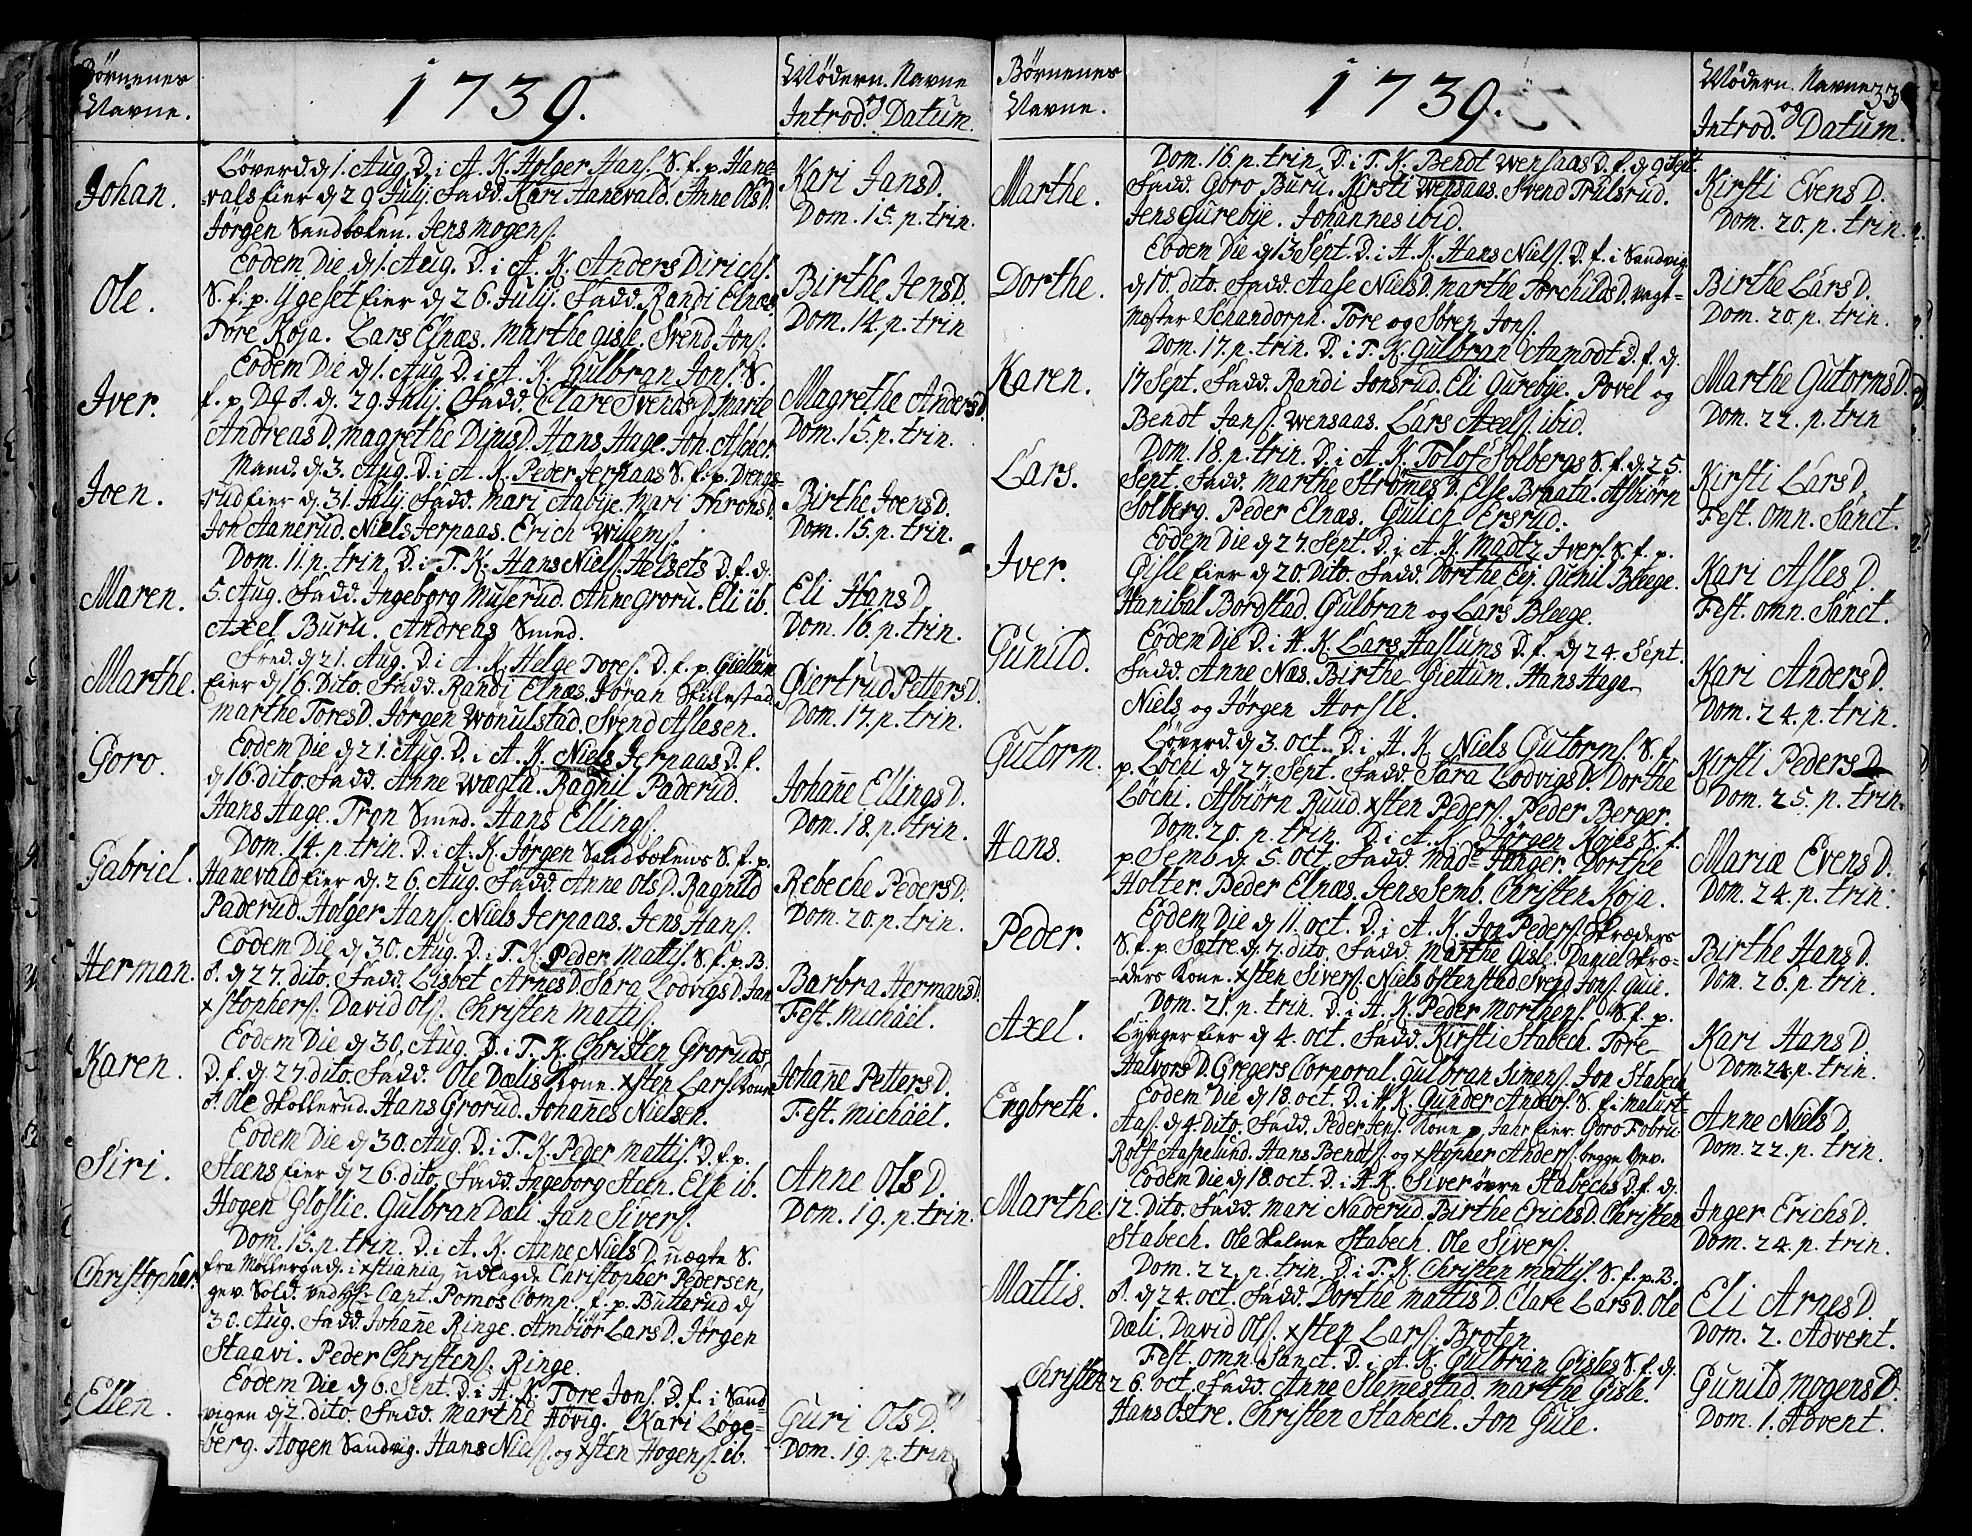 Börnenes
Navne.
1739.
Mödern. Navne
Introd. og Datum.
Johan.
Löverd. d. 1. Aug. D. i A. K. Holger Hans. S. f. p. Hane-
vals eier d 29 July. Fadd. Kari Hanevald. Anne OlsD.
Jörgen Sandbæken. Jens Mogens.
Kari JansD.
Dom. 15. p. trin.
Ole.
Eodem Die d 1. Aug. D. i A. K. Anders Dirichs.
S. f. p. Ygeset eier d 26 July. Fadd. Randi Elnæs
Tore Roja. Lars Elnæs. Marthe Gisle. Svend Jons.
Birthe JensD.
Dom. 14. p. trin
Iver.
Eodem Die d 1. Aug. D. i A. K. Gulbran Jons. S.
f. p. d. 29. July. Fadd. Clare SvendsD. Marte
AndreasD. Magrethe DinisD. Hans Hage. Jon Ascher
Magrethe AndersD.
Dom. 15. p. trin.
Joen.
Mand. d. 3. Aug. D. i A. K. Peder Jernaas S. f. p. Dreng-
rud eier d. 31 July. Fadd. Mari Aabye. Mari ThronsD.
Jon Aanerud. Niels Jernaas. Erich Willems.
Birthe JoensD.
Dom. 15. p. trin.
Maren.
Dom. 11. p. trin. D. i T. K. Hans Niels. Helsets D. f. d.
5. Aug. Fadd. Ingeborg Muserud. Anne Groru. Eli ib.
Axel Buru. Andreas Smed.
Eli HansD
Dom. 16. p. trin.
Marthe.
Fred. d 21. Aug. D. i A. K. Helge Tores. D. f. p. Giellum
eier d 16. Dito. Fadd. Randi Elnæs. Jöran Skulestad.
Marthe ToresD. Jörgen Wönulstad. Svend Aslesen.
Giertrud PettersD.
Dom. 17. p. trin.
Goro.
Eodem Die d 21. Aug. D. i A. K. Niels Jernaas D. f.
d 16. dito. Fadd. Anne Wægta. Ragnil Paderud.
Hans Hage. Tron Smed. Hans Ellings.
Johañe EllingsD.
Dom. 18. p. trin.
Gabriel.
Dom. 14. p. trin. D. i A. K. Jörgen Sandbækens S. f. p.
Hanevald eier d. 26. Aug. Fadd. Anne OlsD. Ragnild
Paderud. Holger Hans. Niels Jernaas. Jens Hans.
Rebeche PedersD.
Dom. 20. p. trin.
Herman.
Eodem Die d 30. Aug. D. i T. K. Peder Mattis. S. f. p. B.
d 27 dito. Fadd. Lisbet ArnesD. Sara LodvigsD. Jan
Xstophers. David Ols. Christen Mattis.
Barbra HermansD.
Fest. Michael.
Karen.
Eodem Die d 30. Aug. D. i T. K. Christen Groruds
D. f. d 27. dito. Fadd. Ole Dælis Kone. Xsten Lars. Kone
Ole Skollerud. Hans Grorud. Johañes Nielsen.
Johañe PettersD.
Fest. Michael.
Siri.
Eodem Die d 30. Aug. D. i T. K. Peder Mattis. D. f. p.
Steens eier d 26 dito. Fadd. Ingeborg Steen. Else ib.
Hogen Gloslie. Gulbran Dæli. Jan Sivers.
Anne OlsD.
Dom. 19. p. trin.
Christopher.
Dom. 15. p. trin. D. i A. K. Anne NielsD. uægte S.
fra Møllergade i Xstiania, udlagde Christopher Pedersen,
gev. Sold. ved Capt. Pomos Comp., f. p. Butterud d
30. Aug. Fadd. Johañe Ringe. Ambiör LarsD. Jörgen
Staavi. Peder Christens. Ringe.
Ellen.
Eodem Die d 6. Sept. D. i A. K. Tore Jons. D. f. i Sand-
vigen d 2. dito. Fadd. Marthe Hövig. Kari Löge-
berg. Hogen Sandvig. Hans Niels. og Xsten Hogens. ib.
Guri OlsD.
Dom. 19. p. trin
Börnenes
Navne.
1739.
Mödern. Navne 33
og
Introd. Datum.
Marthe.
Dom. 16. p. trin. D. i T. K. Bendt Wensaas D. f. d 9 Sept.
Fadd. Goro Buru. Kirsti Wensaas. Svend Trulsrud.
Jens Gurebye. Johannes ibid.
Kirsti EvensD.
Dom. 20. p. trin.
Dorthe.
Eodem Die d 13 Sept. D. i A. K. Hans Niels. D. f. i Sandvig
d 10. dito. Fadd. Aase NielsD. Marthe TorchildsD. Vagt-
Mester Schandorph. Tore og Sören Jons.
Birthe LarsD.
Dom. 20. p. trin.
Karen.
Dom. 17. p. trin. D. i T. K. Gulbran Aamodt D. f. d.
17 Sept. Fadd. Randi Jonsrud. Eli Gurebye. Povel og
Bendt Jans. Wensaas. Lars Axels. ibid.
Marthe GutormsD.
Dom. 22. p. trin
Lars.
Dom. 18. p. trin. D. i A. K. Tolof Solbergs S. f. d. 25.
Sept. Fadd. Marthe StrömesD. Else Braata. Asbiörn
Solberg. Peder Elnæs. Gulich Ersrud.
Kirsti LarsD.
Fest. omn. Sanct.
Iver.
Eodem Die d 27 Sept. D. i A. K. Madtz Ivers. S. f. p.
Gisle eier d 20. Dito. Fadd. Dorthe Eij. Gunil Bleege.
Hanibal Bordstad. Gulbran og Lars Bleege.
Kari AslesD.
Fest. omn. Sanct.
Gunild.
Eodem Die D. i A. K. Lars Haslums D. f. d 24. Sept.
Fadd. Anne Næs. Birthe Gietum. Hans Hage
Niels og Jörgen Horsle.
Kari AndersD.
Dom. 24. p. trin.
Gutorm.
Löverd. d 3. oct. D. i A. K. Niels Gutorms. S. f.
p. Löchi d 27. Sept. Fadd. Sara LodvigsD. Dorthe
Löchi. Asbiörn Ruud. Xsten Peders. Peder Berger.
Kirsti PedersD
Dom. 25. p. trin.
Hans.
Dom. 20. p. trin. D. i A. K. Jörgen Kojes S. f.
p. Semb d. 5. oct. Fadd. Madᵉ Junger. Dorthe
Holter. Peder Elnæs. Jens Semb. Christen Koja.
Mariæ EvensD.
Dom. 24. p. trin.
Peder.
Eodem Die d 11. oct. D. i A. K. Jon Peders. Skræders
S. f. p. Sætre d 7. dito. Fadd. Marthe Gisle. Daniel Skræ-
ders Kone. Xsten Sivers. Niels Ostenstad. Svend Jons. Guie.
Birthe HansD.
Dom. 26. p. trin.
Axel.
Dom. 21. p. trin. D. i A. K. Peder Morthens. S. f. p.
Lysager eier d 4. oct. Fadd. Kirsti Stabech. Tore
HalvorsD. Gregers Corporal. Gulbran Simens. Jon Stabech
Kari HansD
Dom. 24. p. trin.
Engbreth.
Eodem Die d 18. oct. D. i A. K. Gunder Anders. S. f. i Malurt-
Aas. d 4. Dito. Fadd. Peder Jens. Kone p. Jahr eier. Goro Fobru
Rolf Aaspelund. Hans Bendts. og Xstopher Anders. begge gev.
Anne NielsD
Dom. 22. p. trin.
Marthe.
Eodem Die d 18. oct. D. i A. K. Siver övre Stabechs D. f. d.
12. Dito. Fadd. Mari Naderud. Birthe ErichsD. Christen
Stabech. Ole Skalene Stabech. Ole Sivers.
Inger ErichsD.
Dom. 24. p. trin.
Mattis.
Dom. 22. p. trin. D. i T. K. Christen Mattis. S. f. p. B.
d 24. oct. Fadd. Dorthe MattisD. Clare LarsD. Ole
Dæli. David Ols. Xsten Lars. Broten
Eli ArnesD.
Dom. 2. Advent.
Christen
Fest. omn. Sanct. D. i A. K. Gulbran Gisles S. f. d.
26. oct. Fadd. Anne Slemestad. Marthe Gisle.
Hans Ostre. Christen Stabech. Jon Guie.
Gunild MogensD.
Dom. 1. Advent.